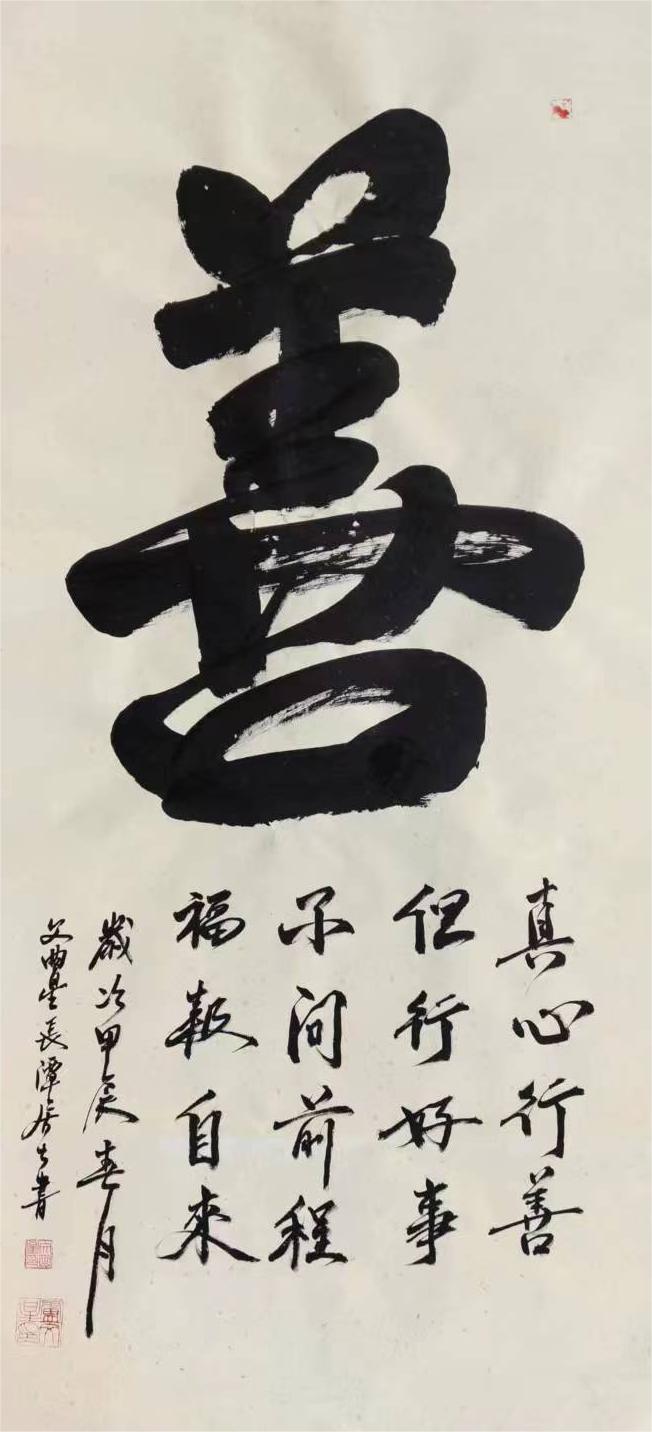 善
真心行善
但行好事
不问前程
福报自来
歲次甲辰春月
文曲星長潭居士書